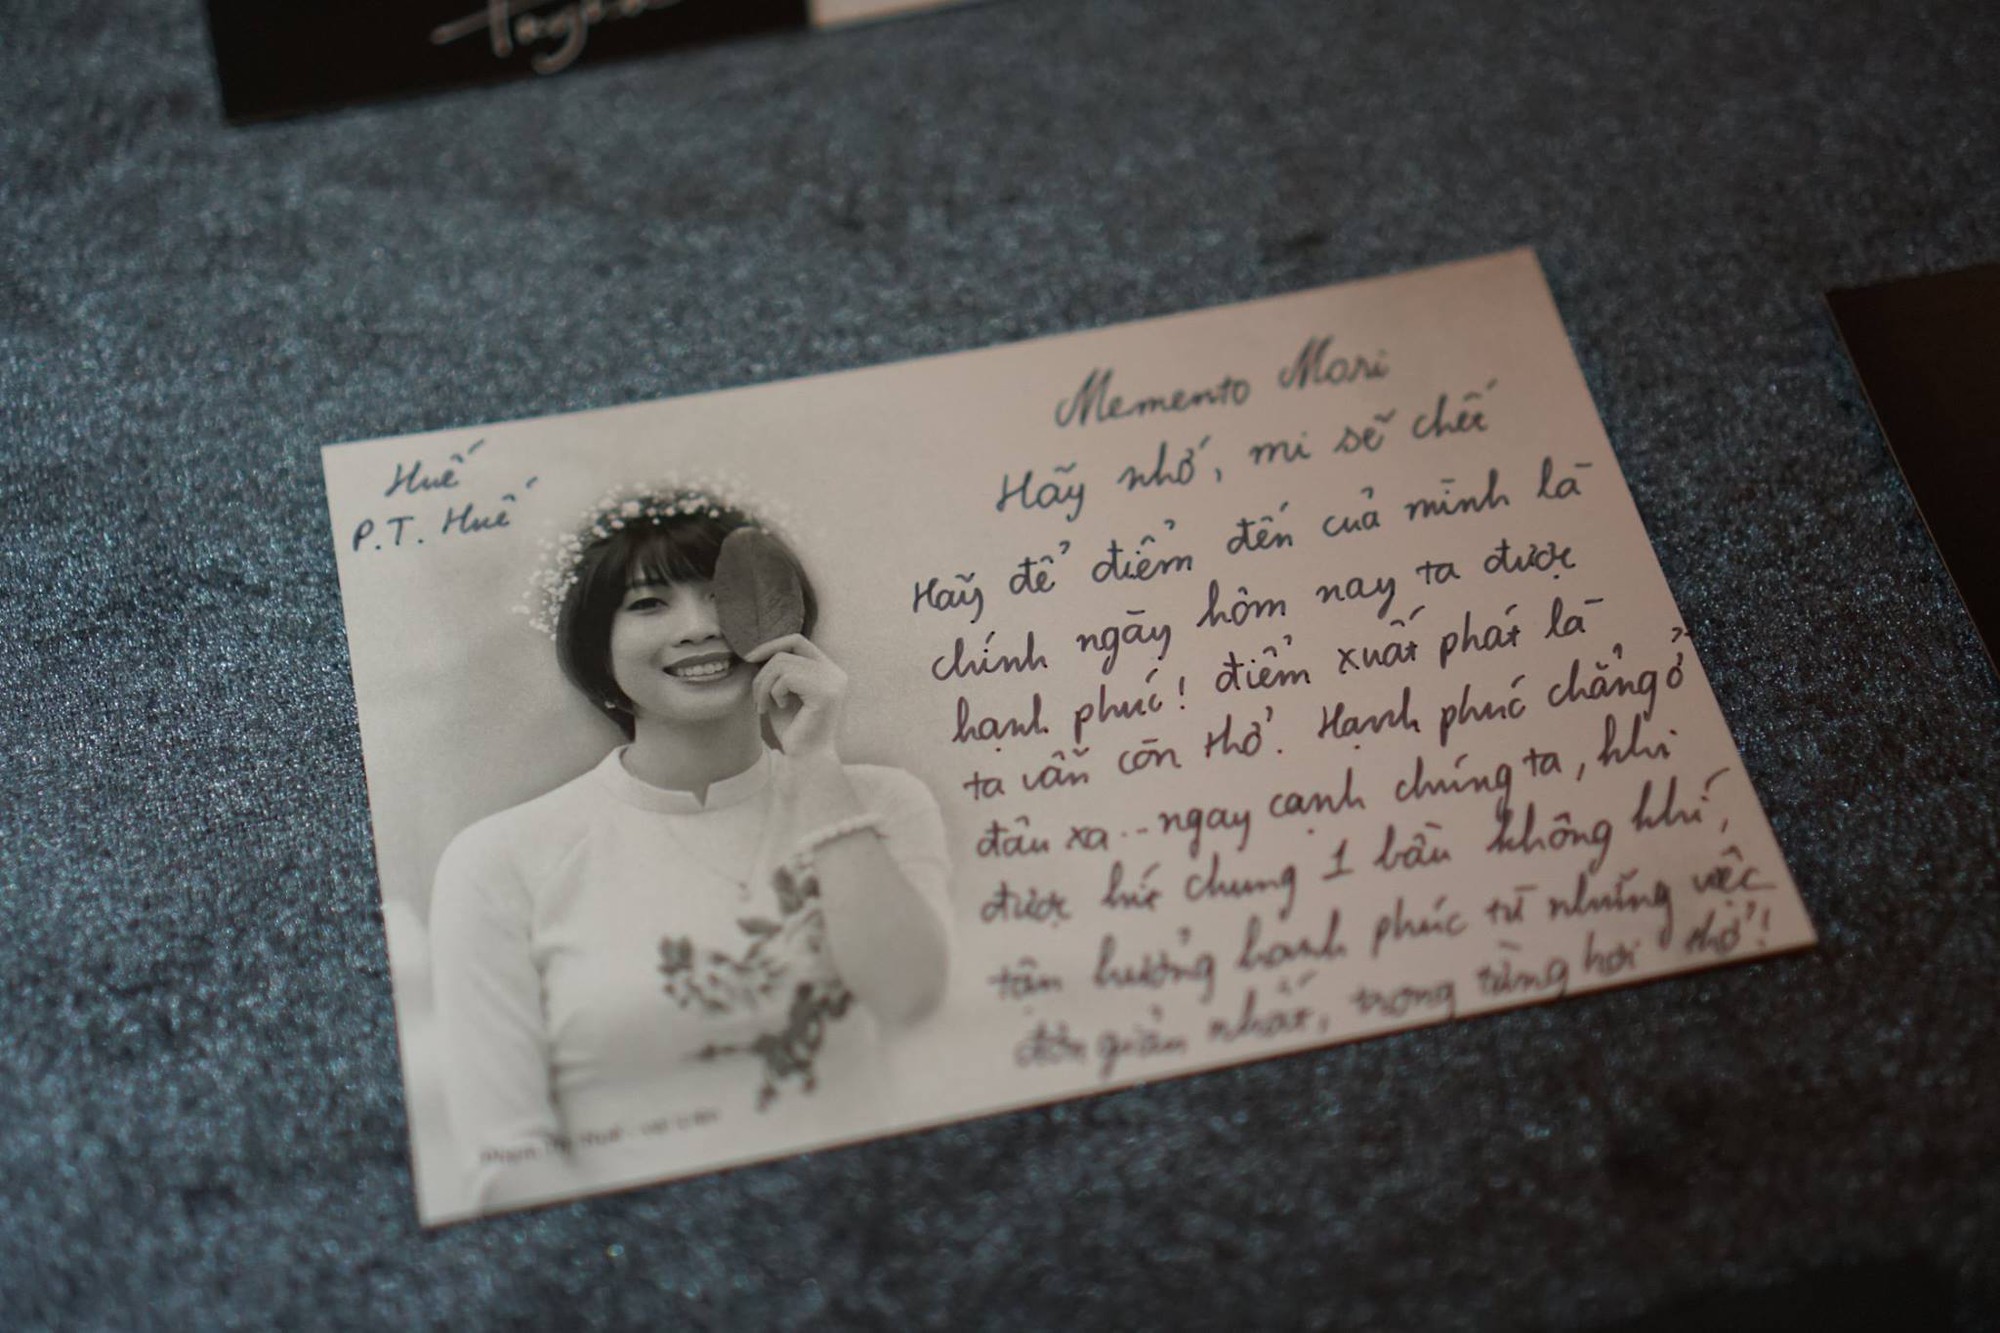 Huế
P.T. Huế
Memento Mori
Hãy nhớ, mi sẽ chết
Hãy để điểm đến của mình là
chính ngày hôm nay ta được
hạnh phúc! điểm xuất phát là
ta vẫn còn thở. Hạnh phúc chẳng ở
đâu xa... ngay cạnh chúng ta, khi
được hít chung 1 bầu không khí,
tận hưởng hạnh phúc từ những việc
đơn giản nhất, trong từng hơi thở!